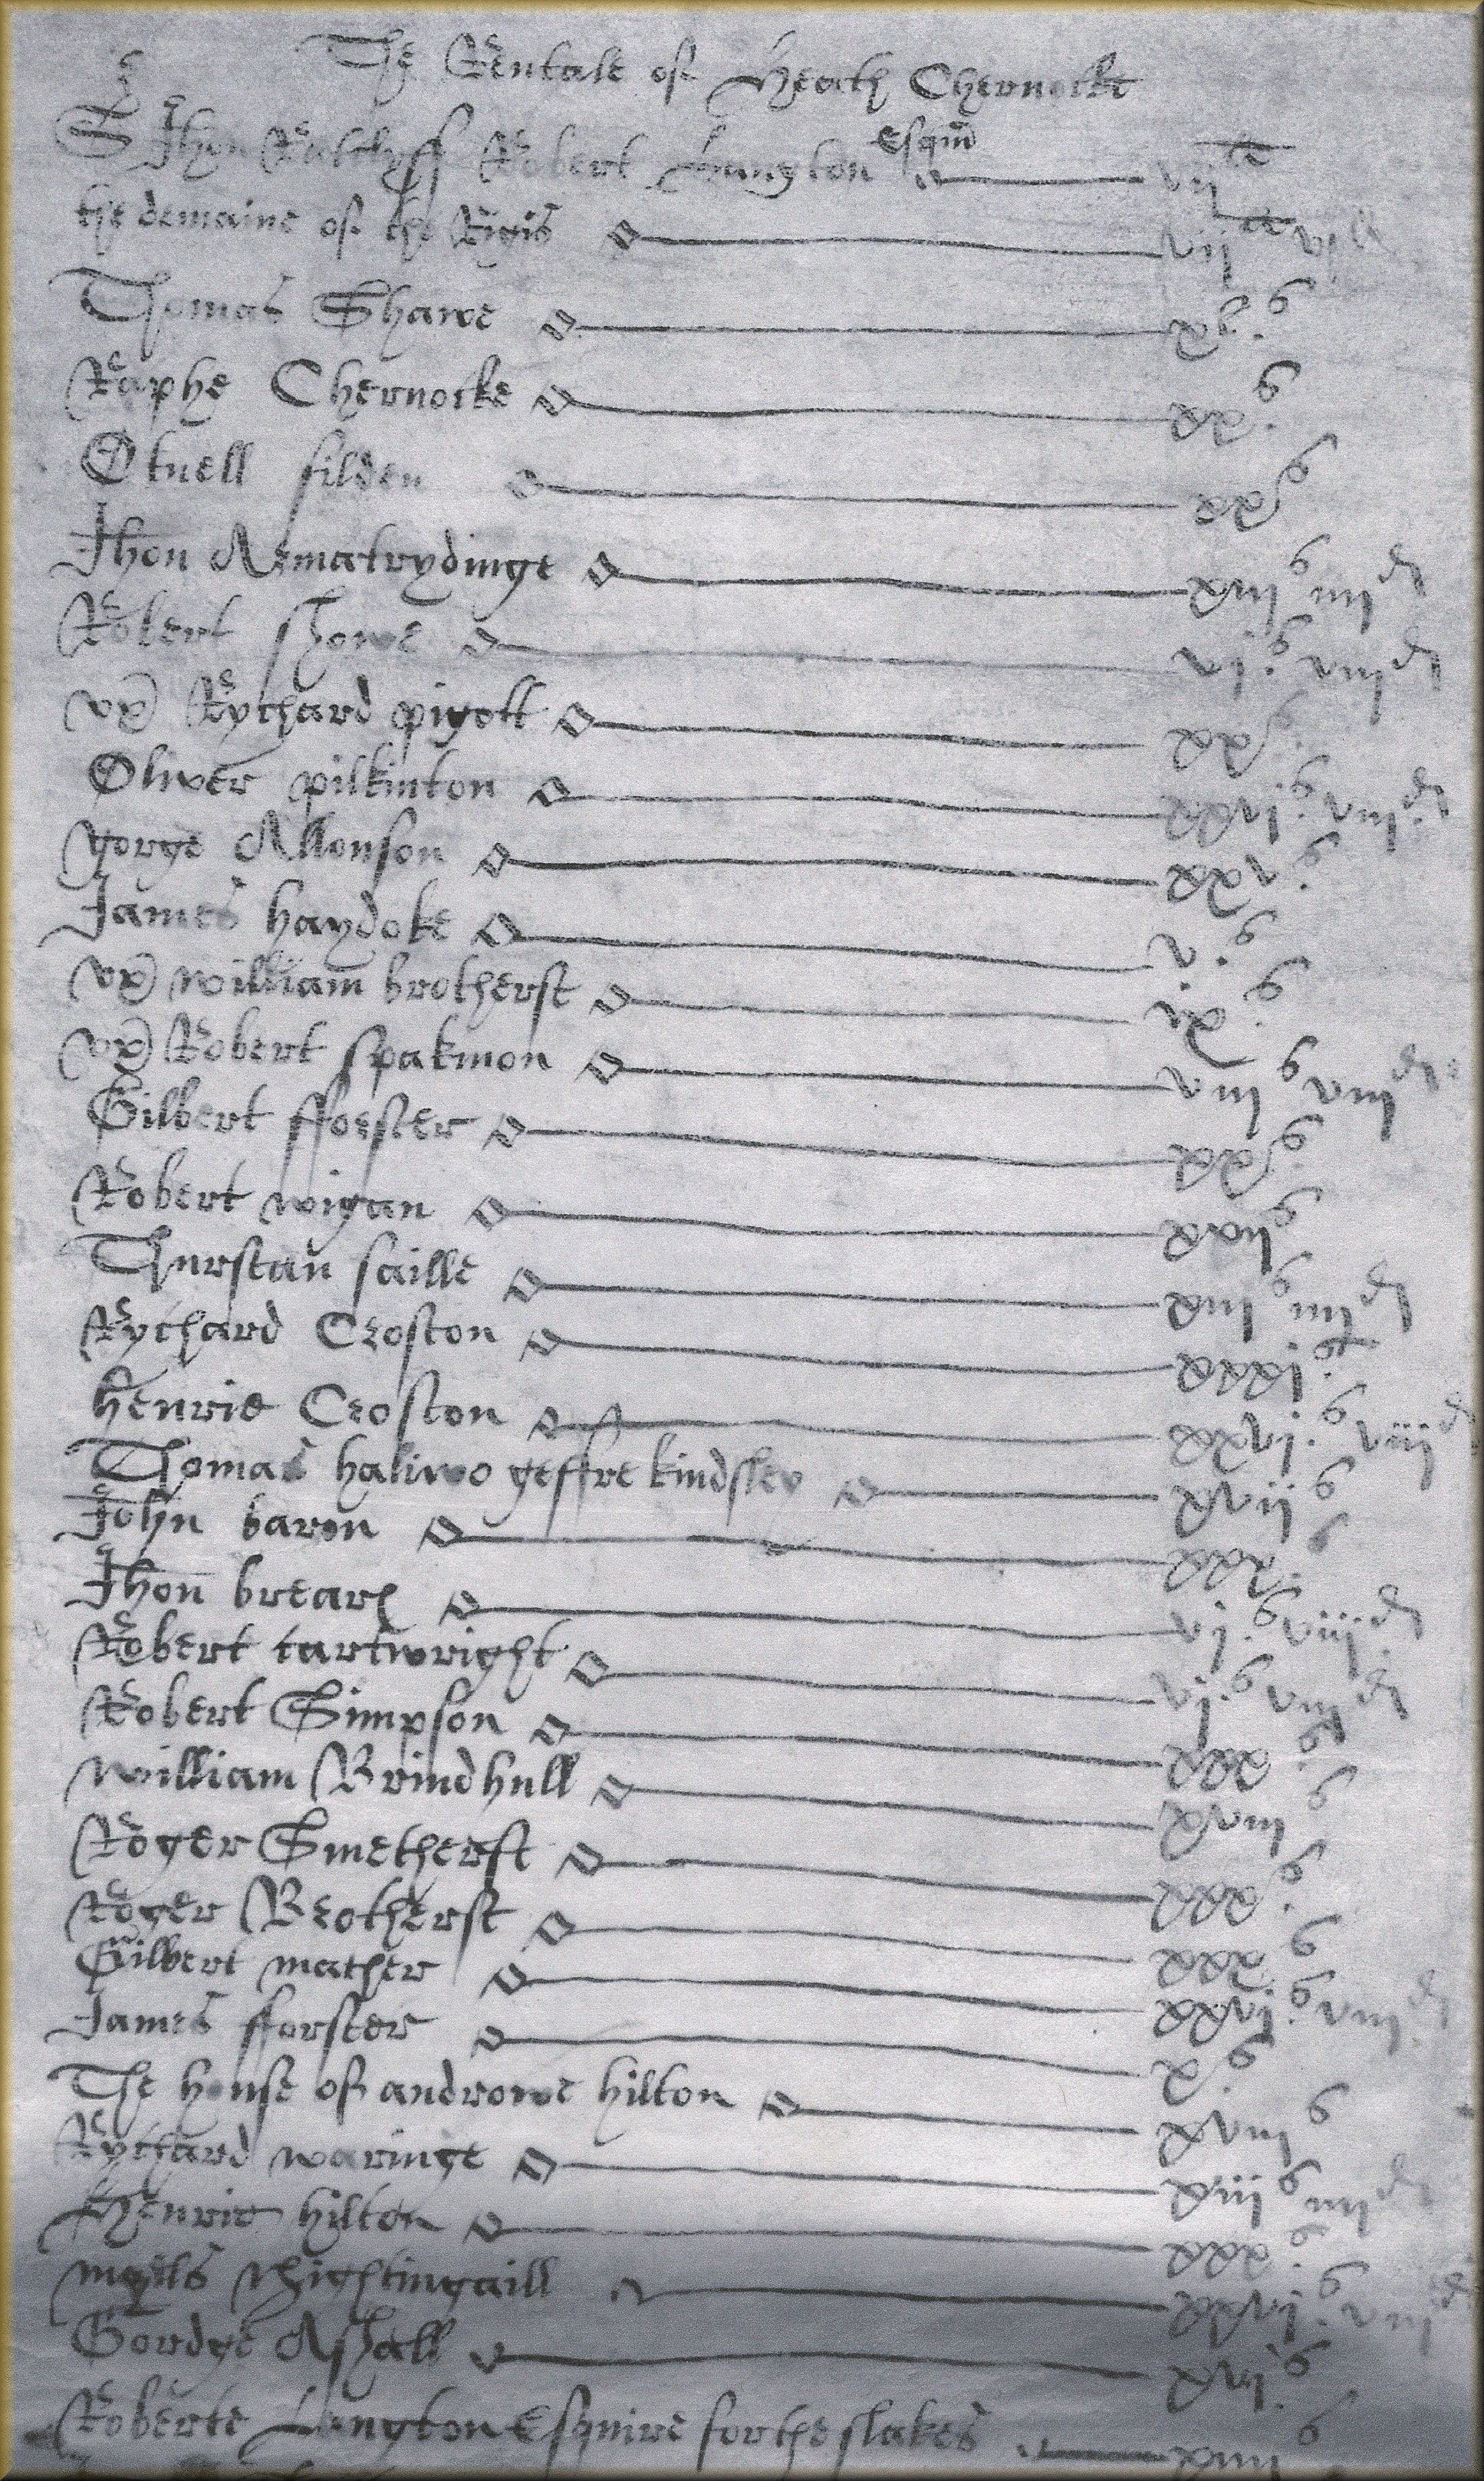 The Rentale of Heath Chernocke
S Jhon Ratclyff Robert Langton esqui vij li
the demaine of the Rigis vij li
Thomas Shawe xl s
Raphe Chernocke xx s
Otuell filden xx s
Jhon Asmatrydinge xiij s iiij d
Robert Showe vj s viij d
vx Rychard pigott xx s
Oliver pilkinton xxvj s viij d
gorge Allonson xxv s
James haydoke v s
vx william brotherst ix s
vx Robert spakmon viij s viij d
Gilbert fforster xx s
Robert wigan xvij s
Thurstan faille xiij s iiij d
Rychard Croston xxxj s
henrie Croston xxvj s viij d
Thomas haliwo geffre kindsley xvij s
John baron xxx s
Jhon brears vj s viij d
Robert cartwright vj s viij d
Robert Simpson xxx s
william Brindhull xviij s
Roger Smetherst xxx s
Roger Brotherst xxx s
Gilbert mather xxvj s viij d
James fforster x s
The house of androwe hilton xviij s
Rychard waringe xiij s iiij d
Henrie hilton xxx s
Nightingaill xxvj s viij d
Gordge Ashall xvj s
Roberte Langton Esquire for the slakes xiiij s